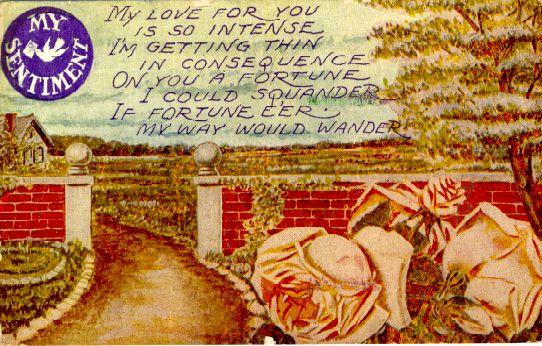 MY
SENTIMENT
MY LOVE FOR YOU
IS SO INTENSE
I'M GETTING THIN
IN CONSEQUENCE
ON YOU A FORTUNE
I COULD SQUANDER
IF FORTUNE E'ER
MY WAY WOULD WANDER